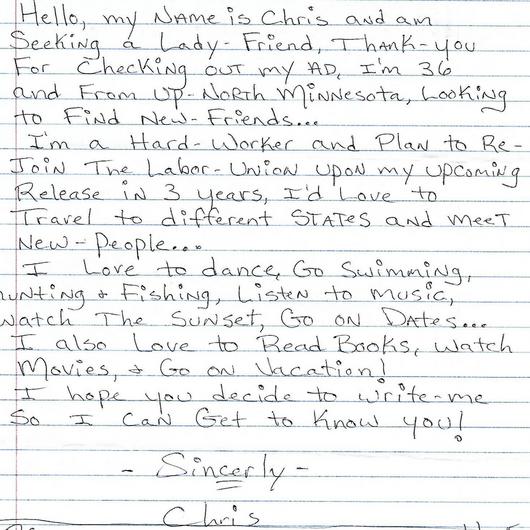 Hello, my NAME is Chris and am
Seeking a Lady-Friend, Thank-you
For Checking out my AD, I'm 36
and From UP-North Minnesota, Looking
to Find New-Friends...
I'm a Hard-Worker and Plan to Re-
Join The Labor-Union upon my upcoming
Release in 3 years, I'd Love to
Travel to different STATES and meeT
New-People...
I Love to dance, Go Swimming,
hunting & Fishing, Listen to music,
watch The Sunset, Go on Dates...
I also Love to Read Books, watch
Movies, & Go on Vacation!
I hope you decide to write-me
So I can Get to Know you!
- Sincerly -
Chris